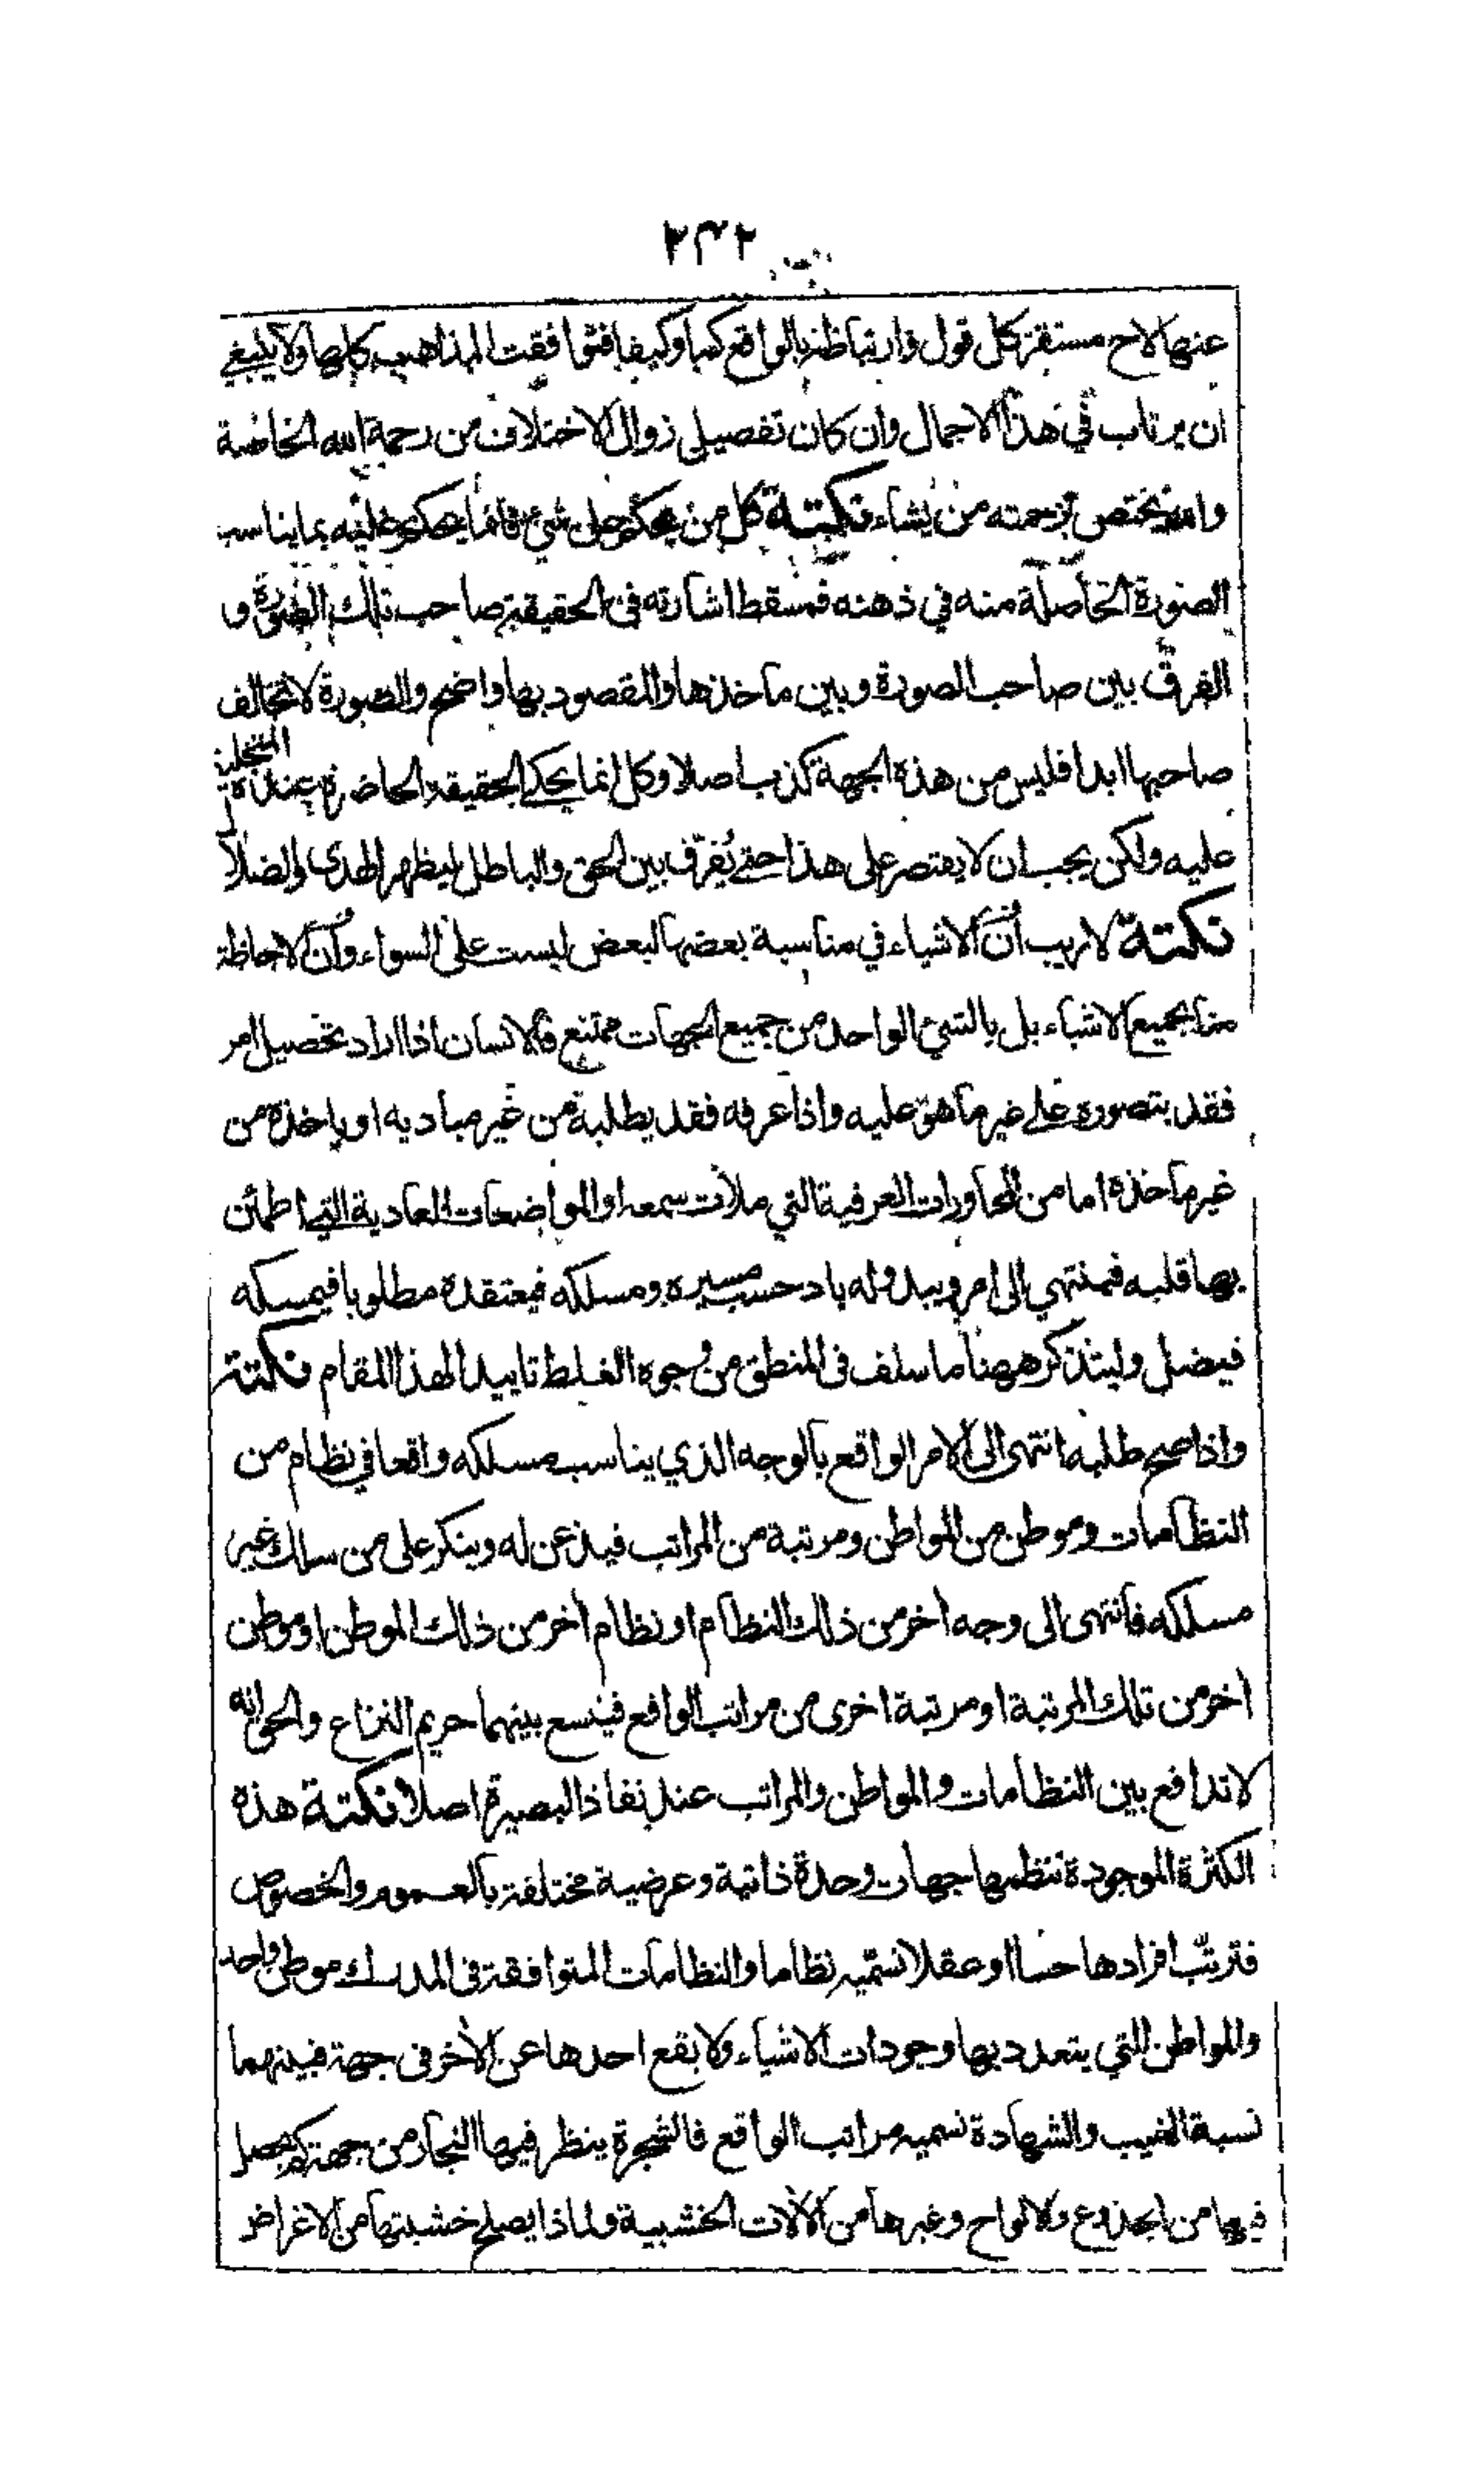 ٢٣٢
عنها لاح مستقر كل قول وارتباطه بالواقع كما وكيفا فتوافقت المذاهب كلها ولا ينبغي
ان يرتاب في هذا الاجمال وان كان تفصيل زوال الاختلاف من رحمة الله الخاصة
والله يختص برحمته من يشاء نكتة كل من يحكم على شيء فانما يحكم عليه بما يناسب
الصورة الحاصلة منه في ذهنه فمسقط اشارته في الحقيقة صاحب تلك الصورة و
الفرق بين صاحب الصورة وبين مأخذها والمقصود بها واضح والصورة لا تخالف
صاحبها ابدا فليس من هذه الجهة كذب اصلا وكل انما يحكي الحقيقة الحاضرة عنده المتجلية
عليه ولكن يجب ان لا يقتصر على هذا حتى يُفرّق بين الحق والباطل ليظهر الهدى والضلال
نكتة لا ريب أنّ الاشياء في مناسبة بعضها لبعض ليست على السواء وأن الاحاطة
منا بجميع الاشياء بل بالشيء الواحد من جميع الجهات ممتنع فالانسان اذا اراد تحصيل امر
فقد يتصوره على غير ما هو عليه واذا عرفه فقد يطلبه من غير مباديه او ياخذه من
غير مأخذه اما من المحاورات العرفية التي ملأت سمعه او المواضعات العادية التي اطمأن
بها قلبه فينتهي الى امر ويبدو له باد حسب مسيره ومسلكه فيعتقده مطلوبا فيمسكه
فيضل وليتذكر ههنا ما سلف في المنطق من وجوه الغلط تاييدا لهذا المقام نكتة
واذا صح طلبه انتهى الى الامر الواقع بالوجه الذي يناسب مسلكه واقعا في نظام من
النظامات وموطن من المواطن ومرتبة من المراتب فيذعن له وينكر على من سلك غير
مسلكه فانتهى الى وجه اخر من ذلك النظام او نظام أخر من ذلك الموطن او موطن
اخر من تلك المرتبة او مرتبة اخرى من مراتب الواقع فيتسع بينهما حريم النزاع والحق انه
لا تدافع بين النظامات والمواطن والمراتب عند نفاذ البصيرة اصلا نكتة هذه
الكثرة الموجودة تنتظمها جهات وحدة ذاتية وعرضية مختلفة بالعموم والخصوص
فترتّب افرادها حسا او عقلا نسمّيه نظاما والنظامات المتوافقة في المدرك موطن واحد
والمواطن التي يتعدد بها وجودات الاشياء ولا يقع احدها عن الأخر في جهة فبينهما
نسبة الغيب والشهادة نسميه مراتب الواقع فالشجرة ينظر فيها النجار من جهة كم يحصل
فيها من الجذوع والالواح وغيرها من الألات الخشبية ولماذا يصلح خشبتها من الاغراض